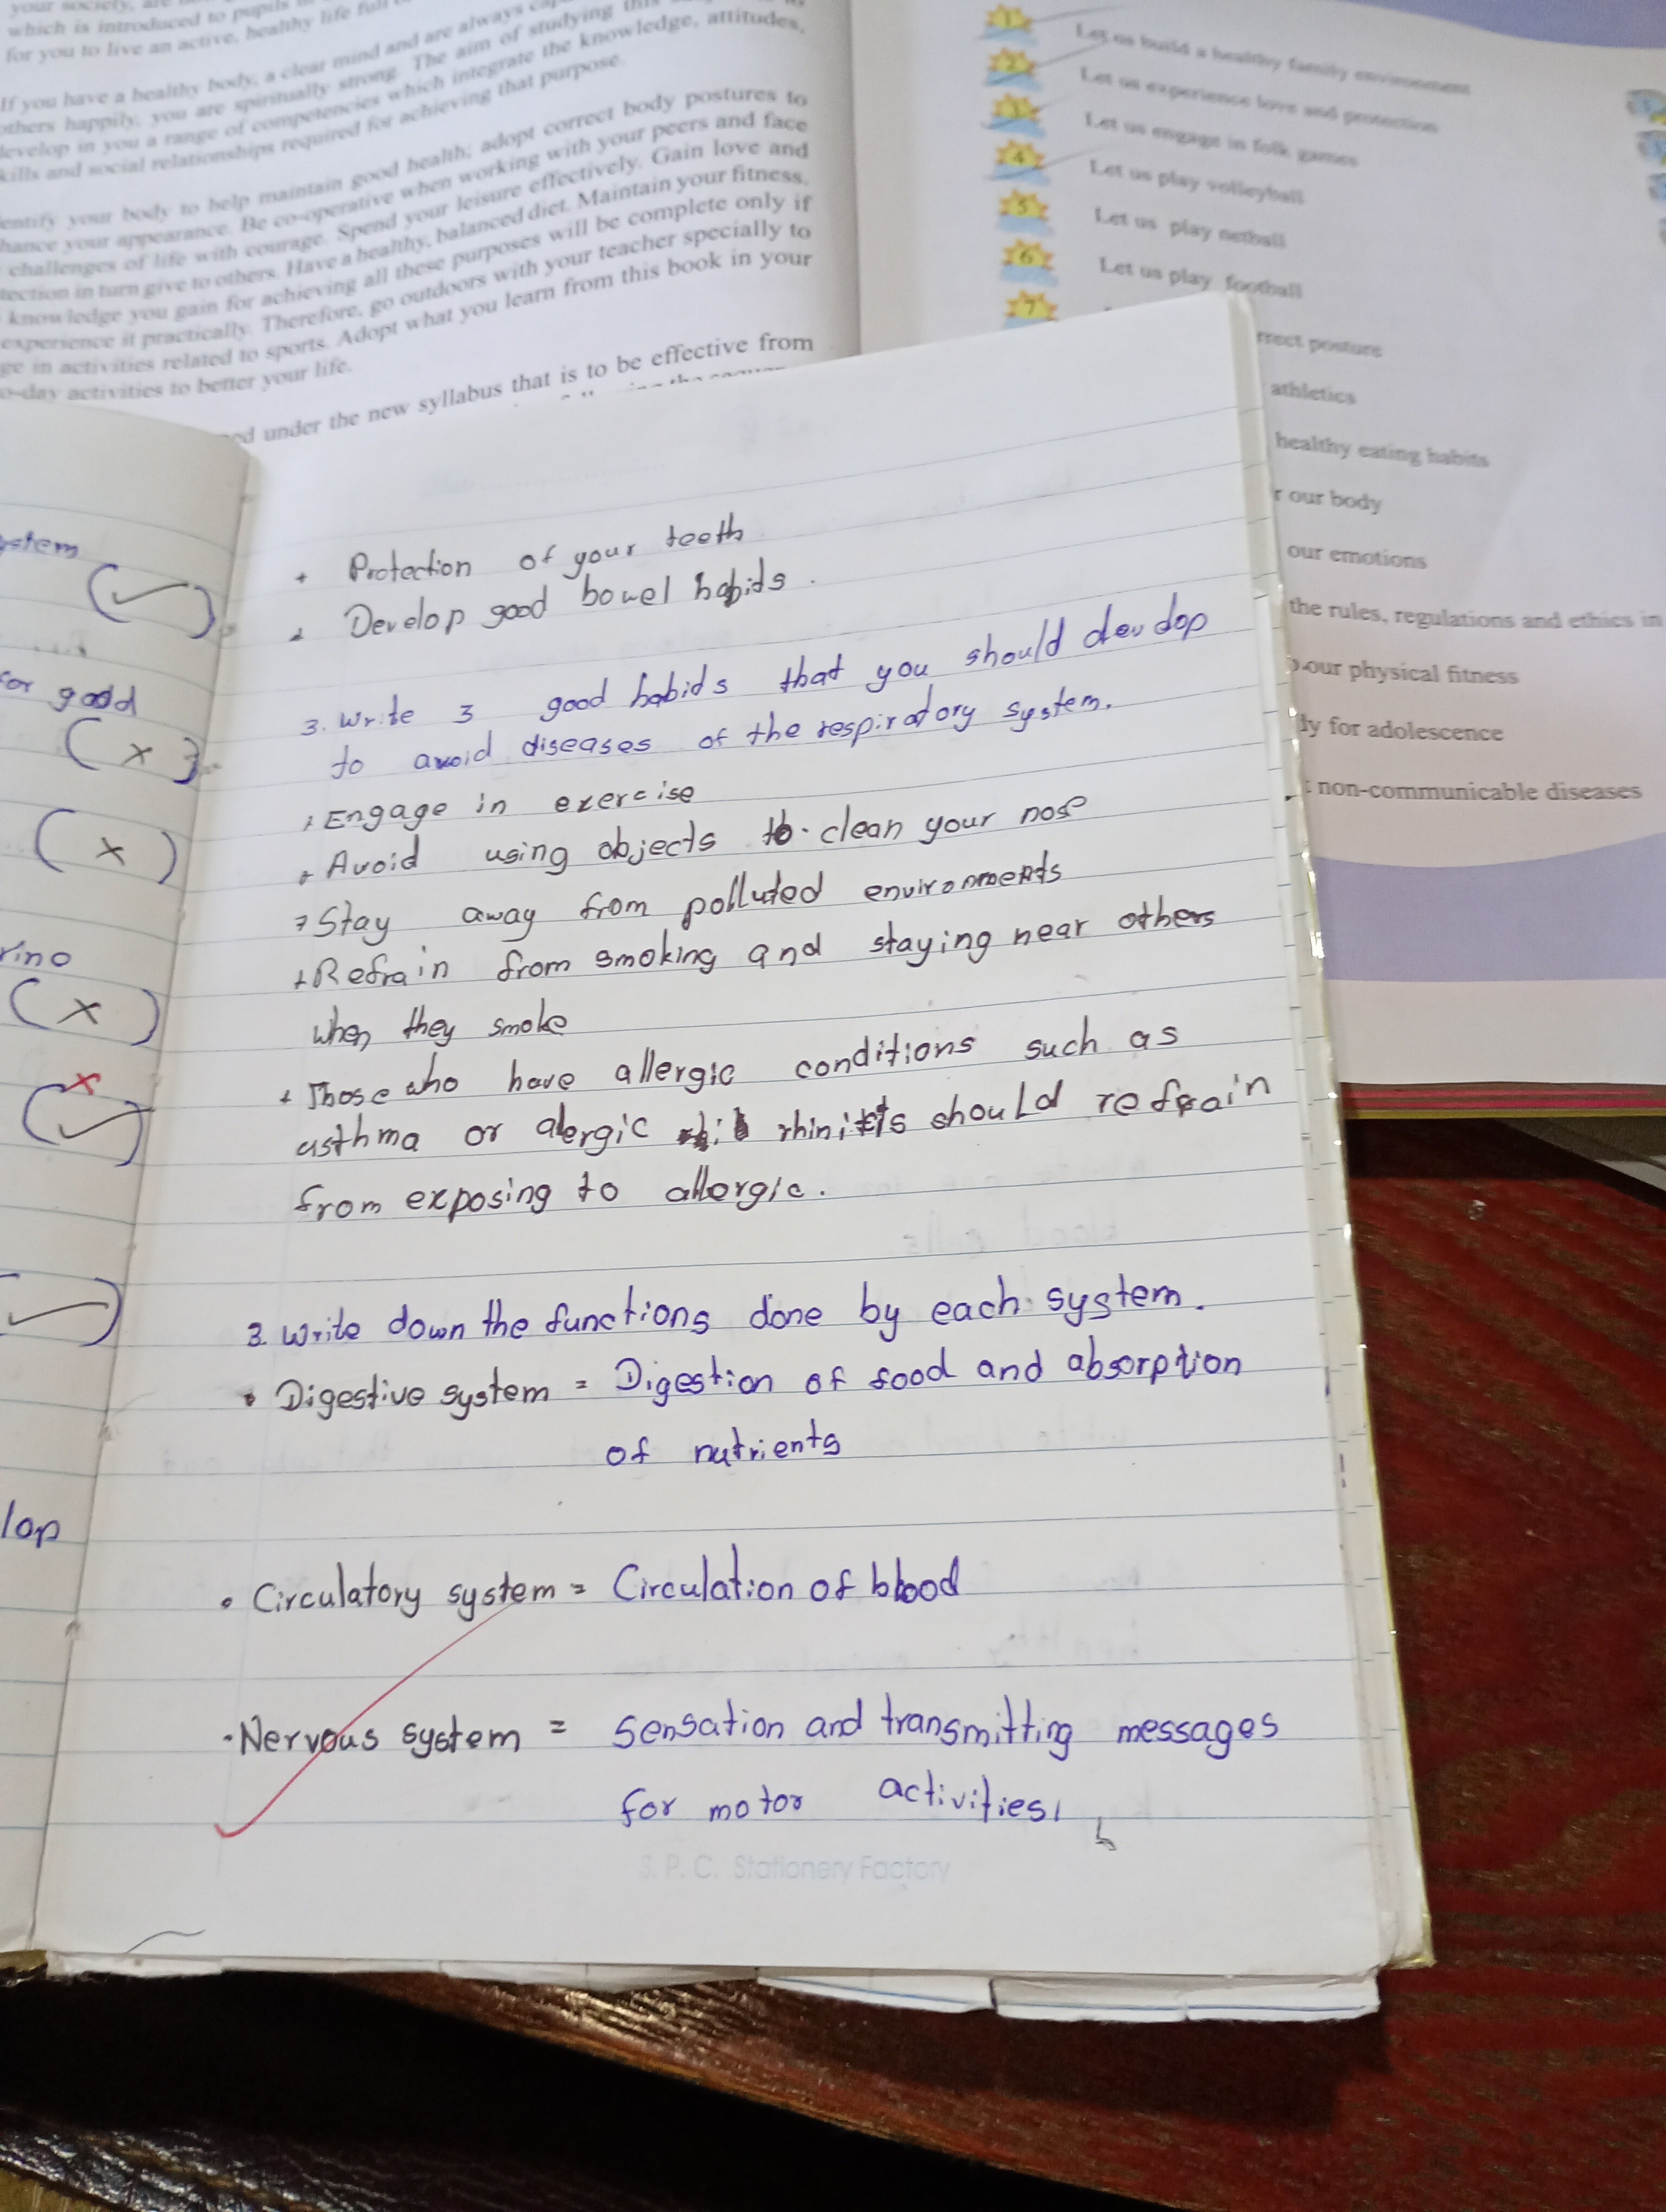 which is introduced to pupils
for you to live an active, healthy life full
If you have a healthy body, a clear mind and are always
others happily, you are spiritually strong. The aim of studying this
develop in you a range of competencies which integrate the knowledge, attitudes,
kills and social relationships required for achieving that purpose.
entify your body to help maintain good health; adopt correct body postures to
hance your appearance. Be co-operative when working with your peers and face
challenges of life with courage. Spend your leisure effectively. Gain love and
tection in turn give to others. Have a healthy, balanced diet. Maintain your fitness.
knowledge you gain for achieving all these purposes will be complete only if
experience it practically. Therefore, go outdoors with your teacher specially to
ge in activities related to sports. Adopt what you learn from this book in your
o-day activities to better your life.
ed under the new syllabus that is to be effective from
1 Let us build a healthy family environment
2 Let us experience love and protection
3 Let us engage in folk games
4 Let us play volleyball
5 Let us play netball
6 Let us play football
7
rrect posture
athletics
healthy eating habits
r our body
our emotions
the rules, regulations and ethics in
our physical fitness
ly for adolescence
non-communicable diseases
ystem
(✓)
for godd
(x)
(x)
rino
(x)
x
(✓)
✓)
lop
+ Protection of your teeth
Develop good bowel habids.
3. Write 3 good habids that you should develop
to avoid diseases of the respiratory system.
Engage in exercise
+ Avoid using objects to clean your nose
Stay away from polluted environments
+ Refrain from smoking and staying near others
when they smoke
+ Those who have allergic conditions such as
asthma or alergic rhinitis should refrain
from exposing to allergic.
3. Write down the functions done by each system.
• Digestive system = Digestion of food and absorption
of nutrients
• Circulatory system = Circulation of blood
• Nervous system = Sensation and transmitting messages
for motor activities,
S. P. C. Stationery Factory